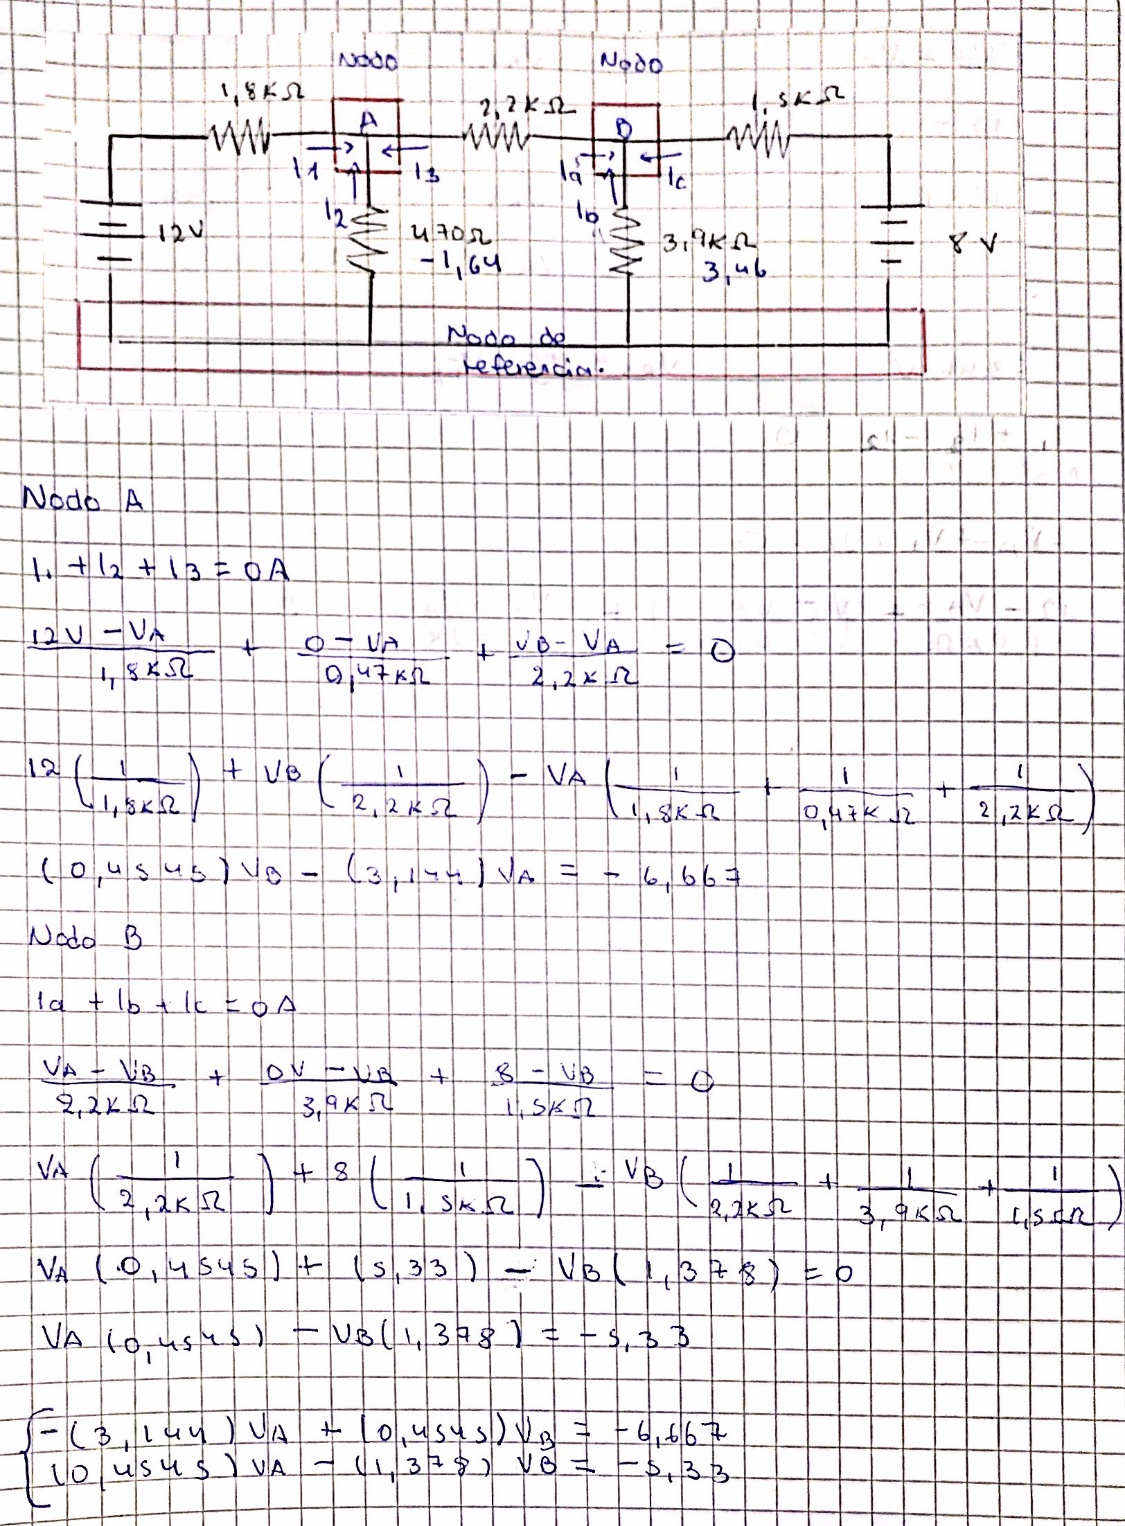 Nodo Nodo
1,8KΩ 2,2KΩ 1,5KΩ
A B
I1 I3 Ia Ic
I2 Ib
12V 470Ω 3,9KΩ 8 V
-1,64 3,46
Nodo de
referencia.
Nodo A
I1 + I2 + I3 = 0A
12V - VA / 1,8KΩ + 0 - VA / 0,47KΩ + VB - VA / 2,2KΩ = 0
12 (1 / 1,8KΩ) + VB (1 / 2,2KΩ) - VA (1 / 1,8KΩ + 1 / 0,47KΩ + 1 / 2,2KΩ)
(0,4545) VB - (3,144) VA = - 6,667
Nodo B
Ia + Ib + Ic = 0A
VA - VB / 2,2KΩ + 0V - VB / 3,9KΩ + 8 - VB / 1,5KΩ = 0
VA (1 / 2,2KΩ) + 8 (1 / 1,5KΩ) - VB (1 / 2,2KΩ + 1 / 3,9KΩ + 1 / 1,5KΩ)
VA (0,4545) + (5,33) - VB (1,378) = 0
VA (0,4545) - VB (1,378) = -5,33
-(3,144) VA + (0,4545) VB = -6,667
(0,4545) VA - (1,378) VB = -5,33